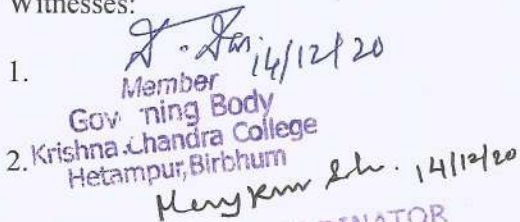 Witnesses:
1.
14/12/20
Member
Gov ning Body
2. Krishna Chandra College
Hetampur, Birbhum
14/12/20
DINATOR